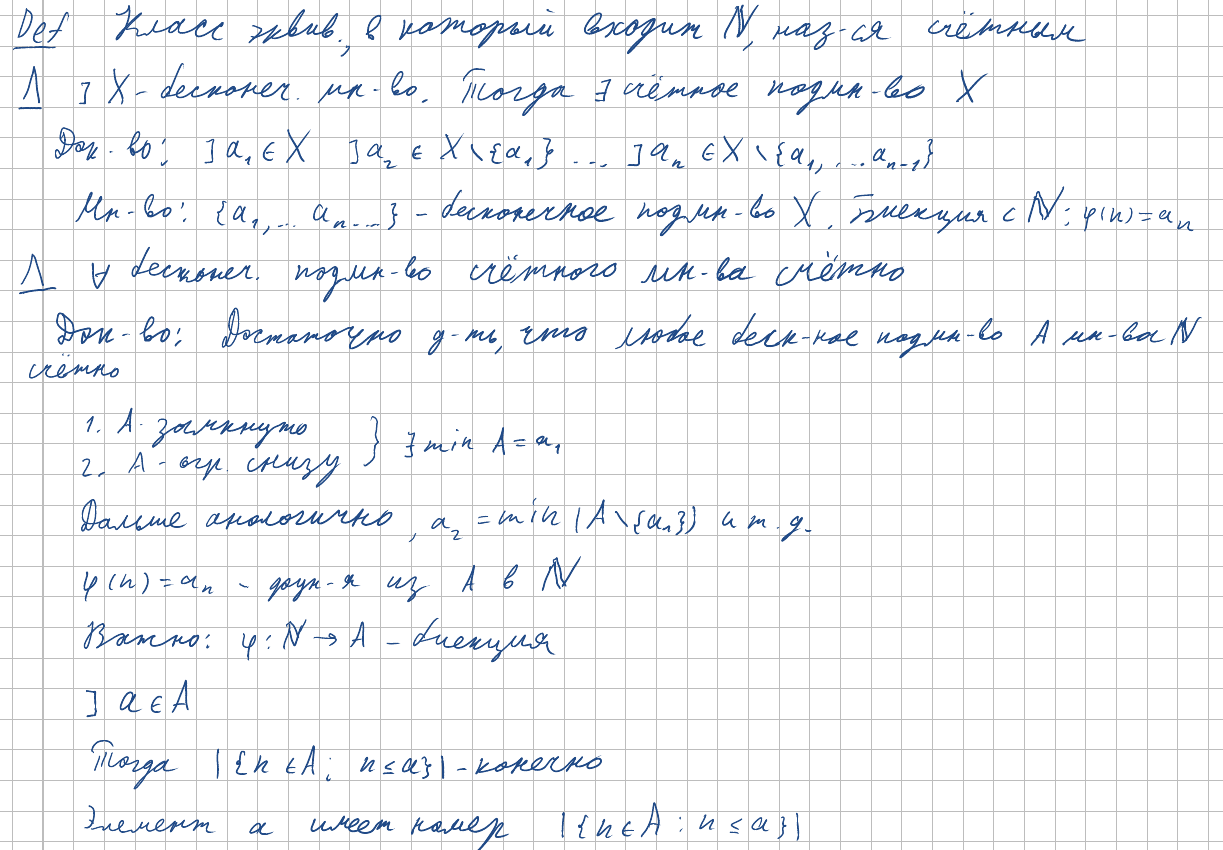 Def Класс эквив., в который входит ℕ, наз-ся счётным
Л ] X - бесконеч. мн-во. Тогда ∃ счётное подмн-во X
Док-во: ] a₁ ∈ X ] a₂ ∈ X \ {a₁} ... ] aₙ ∈ X \ {a₁, ... aₙ₋₁}
Мн-во: {a₁, ... aₙ ...} - бесконечное подмн-во X. Биекция с ℕ: φ(n) = aₙ
Л ∀ бесконеч. подмн-во счётного мн-ва счётно
Док-во: Достаточно д-ть, что любое беск-ное подмн-во A мн-ва ℕ
счётно
1. A - замкнуто
2. A - огр. снизу } ∃ min A = a₁
Дальше анологично, a₂ = min (A \ {a₁}) и т.д.
φ(n) = aₙ - функ-я из A в ℕ
Важно: φ: ℕ → A - биекция
] a ∈ A
Тогда |{n ∈ A: n ≤ a}| - конечно
Элемент a имеет номер |{n ∈ A : n ≤ a}|